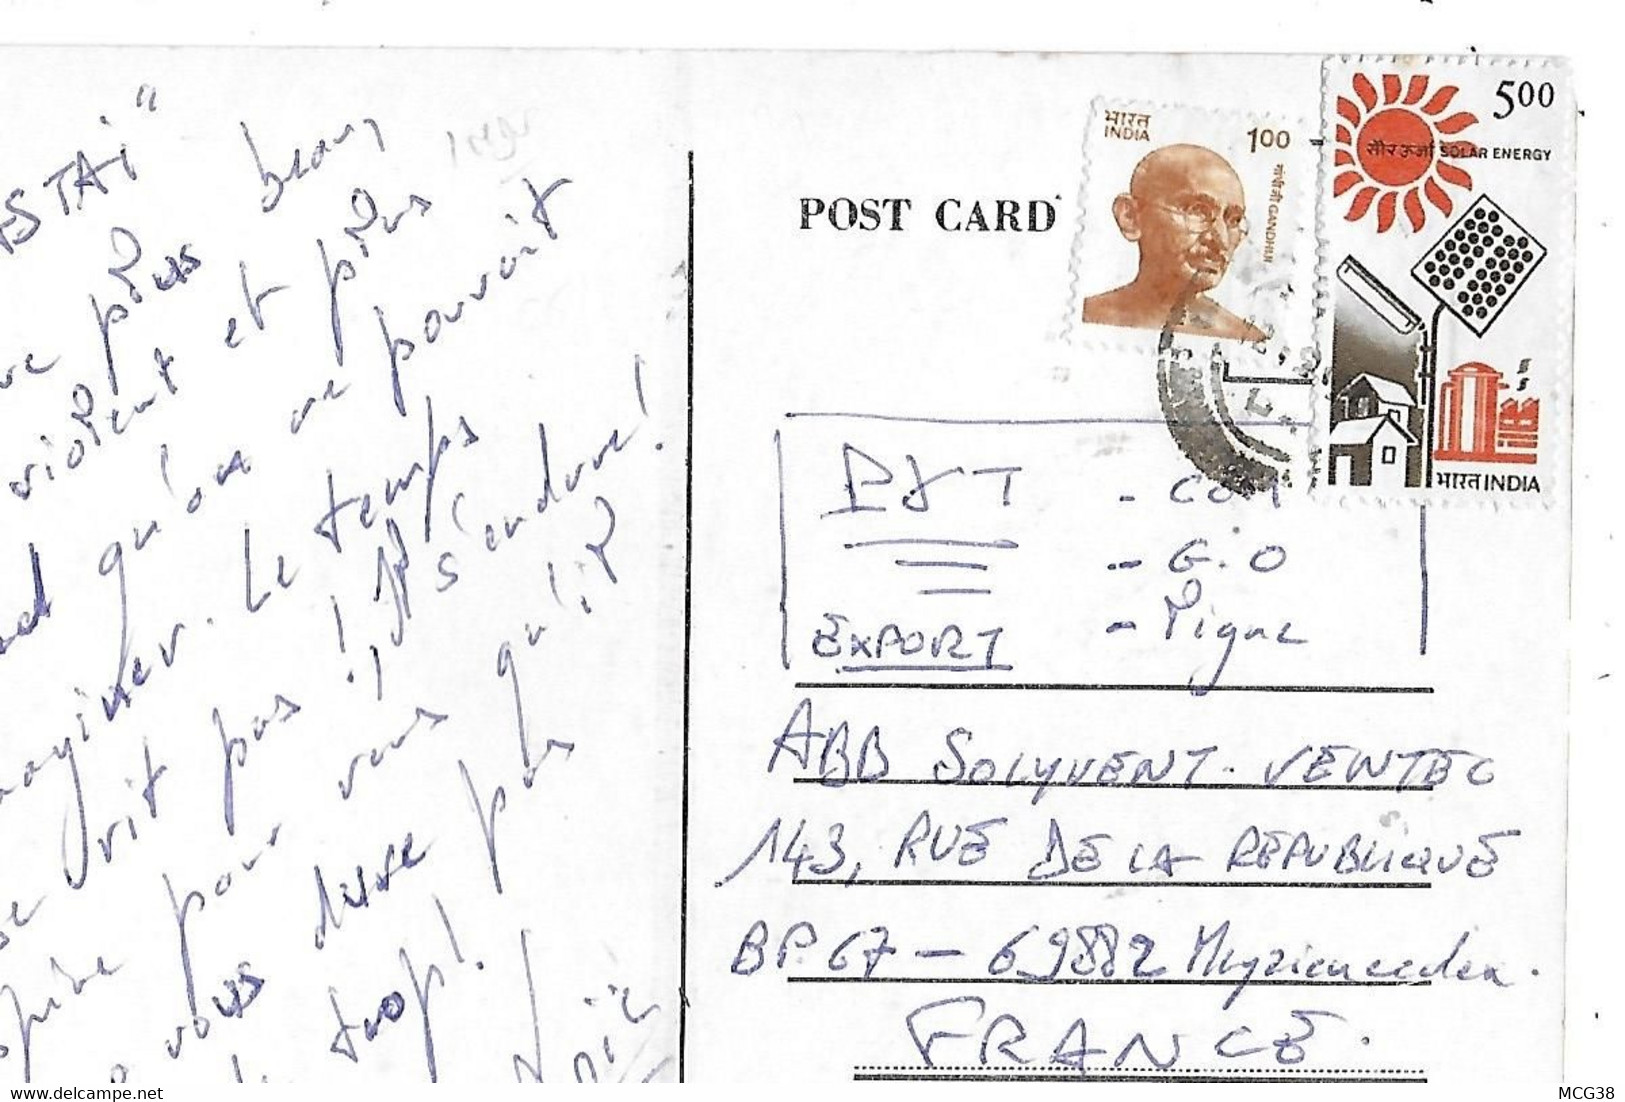 STAi"
plus beau,
violent et plus
qu'on ne pouvait
Le temps
rit pas ! Il s'endure !
pour vous qu'il
vous dure pas
trop !
POST CARD
भारत
INDIA
1.00
गांधी जी GANDHIJI
5.00
सौर ऊर्जा SOLAR ENERGY
भारत INDIA
- COM
- G.O
EXPORT
ABB SOLYVENT-VENTEC
143, RUE DE LA REPUBLIQUE
BP. 67 - 69882 Meyzieu cedex.
FRANCE.
MCG38